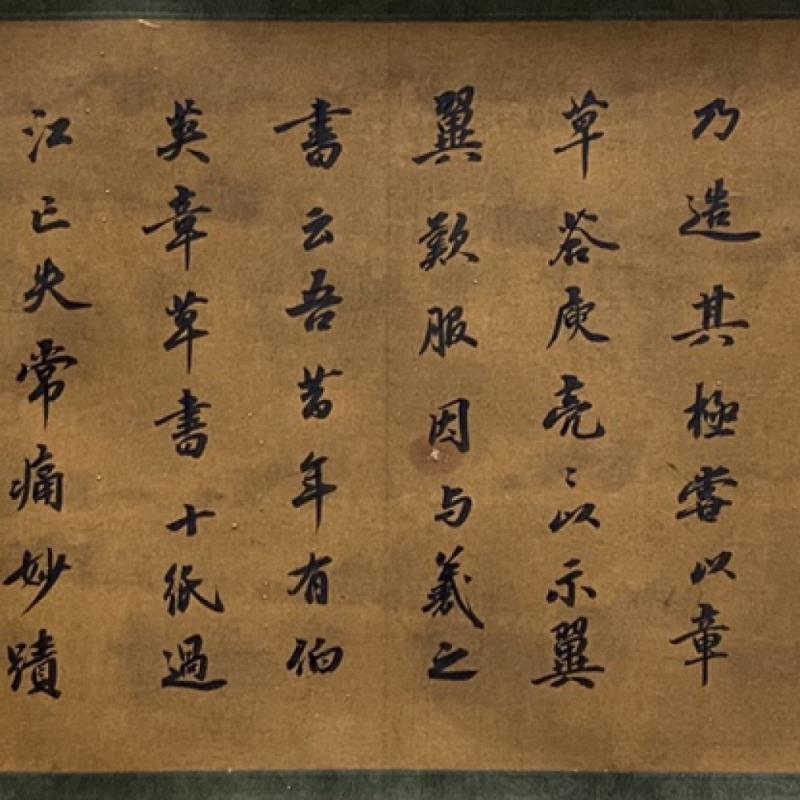 乃造其極嘗以章
草荅庾亮〻以示翼
翼歎服因与羲之
書云吾昔年有伯
英章草書十紙過
江亡失常痛妙蹟